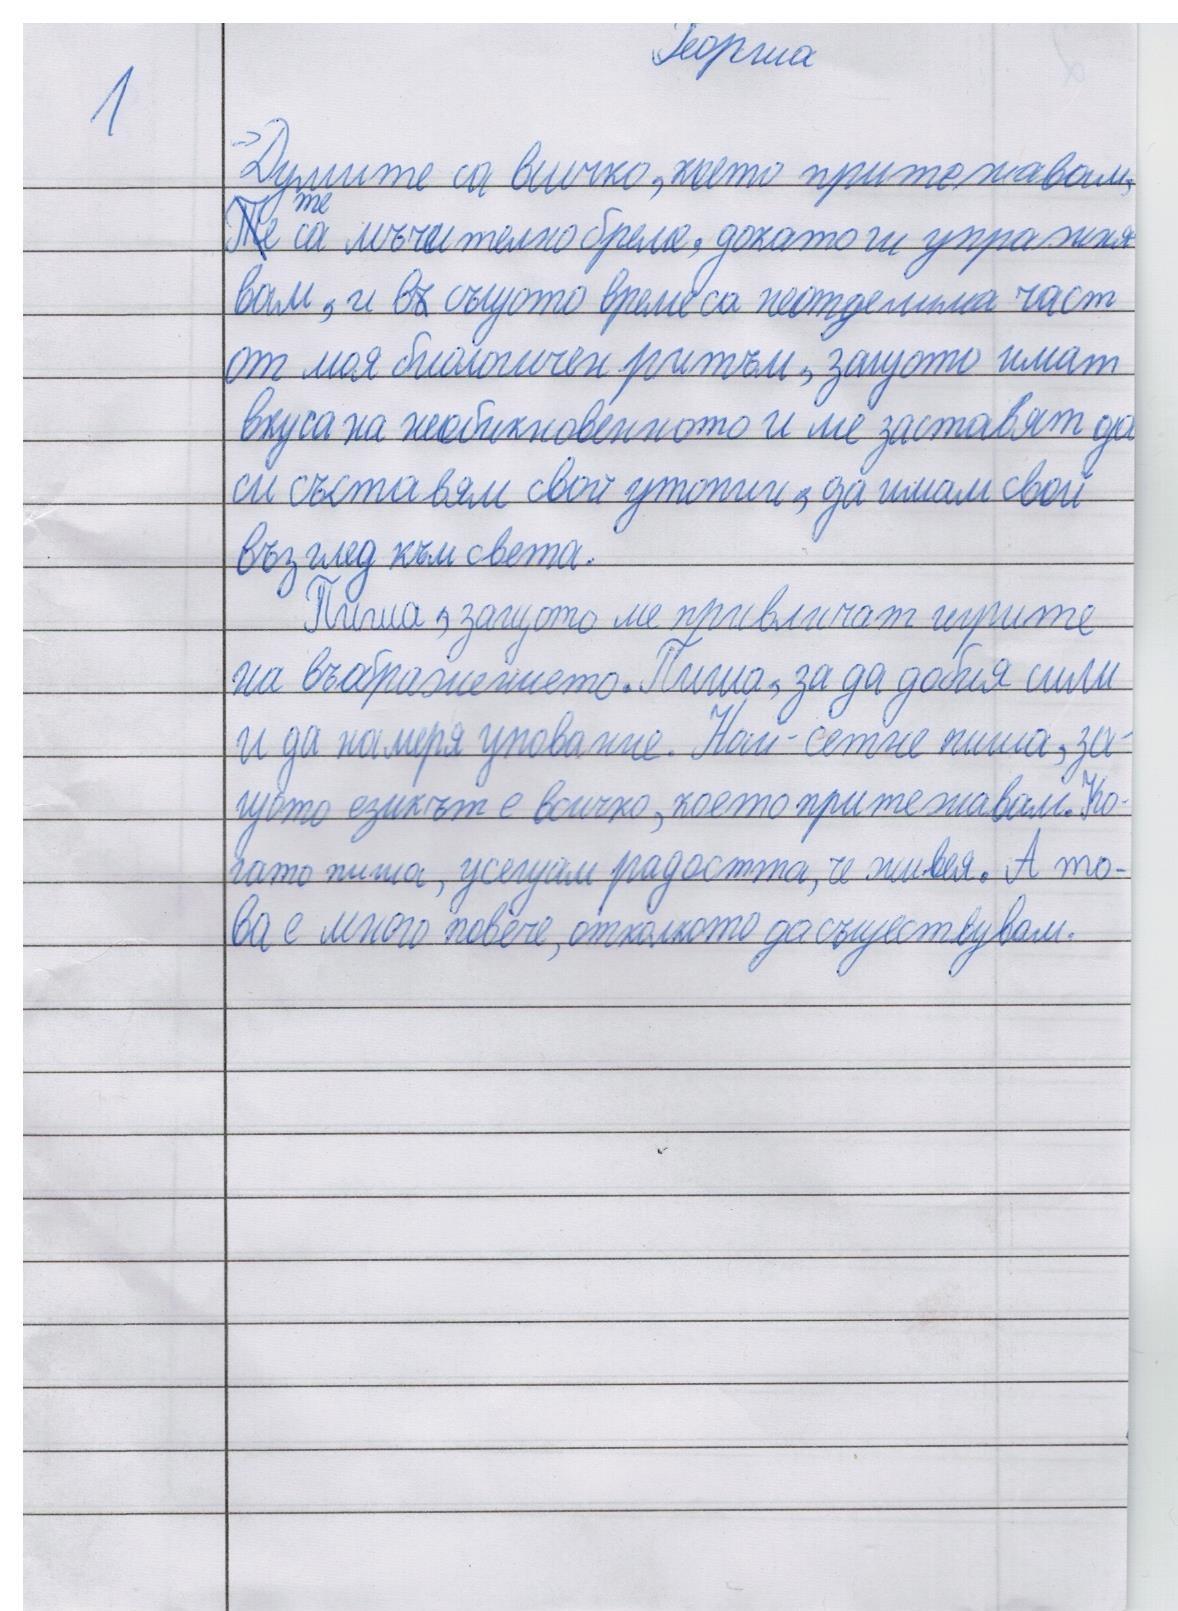 Георгиа
1
→ Думите са всичко, което притежавам,
Те те са мъчително бреме, докато ги упражня
вам, и въ същото време са неотделима част
от моя биологичен ритъм, защото имат
вкуса на необикновенното и ме заставят да
си съставям свои утопии, да имам свой
възглед към света.
Пиша, защото ме привличат игрите
на въображението. Пиша, за да добия сили
и да намеря упование. Най-сетне пиша, за-
щото езикът е всичко, което притежавам. Ко-
гато пиша, усещам радостта, че живея. А то-
ва е много повече, отколкото да съществувам.